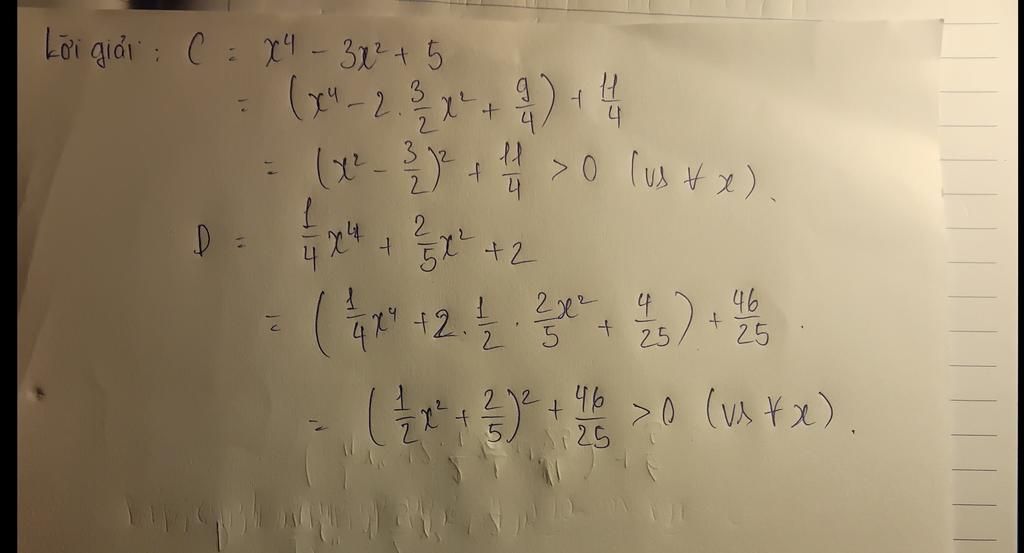 Lời giải : C = x⁴ - 3x² + 5
= (x⁴ - 2 . 3/2 x² + 9/4) + 11/4
= (x² - 3/2)² + 11/4 > 0 (vs ∀ x).
D = 1/4 x⁴ + 2/5 x² + 2
= (1/4 x⁴ + 2 . 1/2 . 2x²/5 + 4/25) + 46/25 .
= (1/2 x² + 2/5)² + 46/25 > 0 (vs ∀ x) .